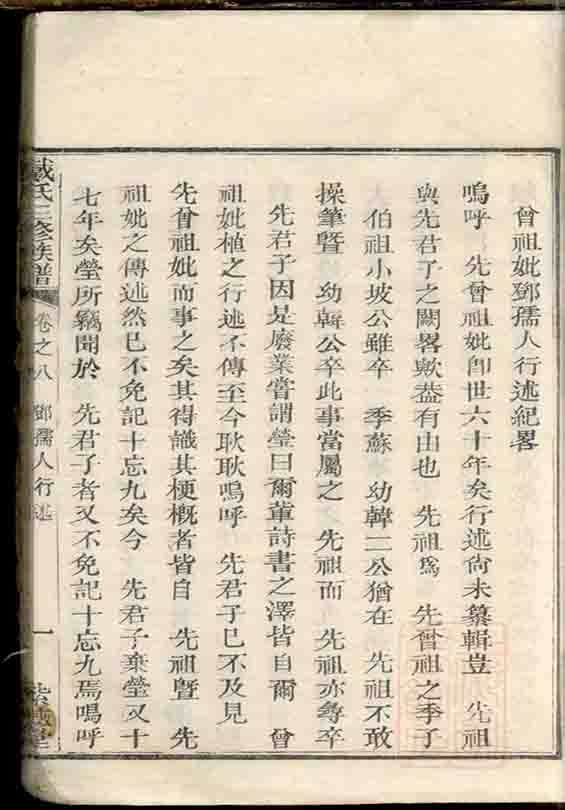 曾祖妣鄧孺人行述紀畧
嗚呼　先曾祖妣卽世六十年矣行述尙未纂輯豈　先祖
與先君子之闕畧歟葢有由也　先祖爲　先曾祖之季子
大伯祖小坡公雖卒　季蘇　幼韓二公猶在　先祖不敢
操筆曁　幼韓公卒此事當屬之　先祖而　先祖亦尋卒
先君子因是廢業嘗謂瑩曰爾輩詩書之澤皆自爾　曾
祖妣植之行述不傳至今耿耿嗚呼　先君子已不及見
先曾祖妣而事之矣其得識其梗概者皆自　先祖曁　先
祖妣之傳述然已不免記十忘九矣今　先君子棄瑩又十
七年矣瑩所竊聞於　先君子者又不免記十忘九焉嗚呼
戴氏三修族譜　卷之八　鄧孺人行述　一